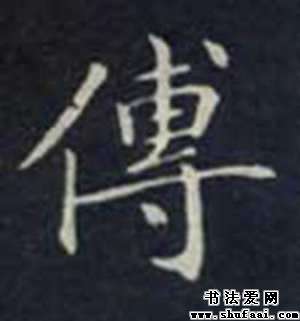 傅
书法爱网
www.shufaai.com